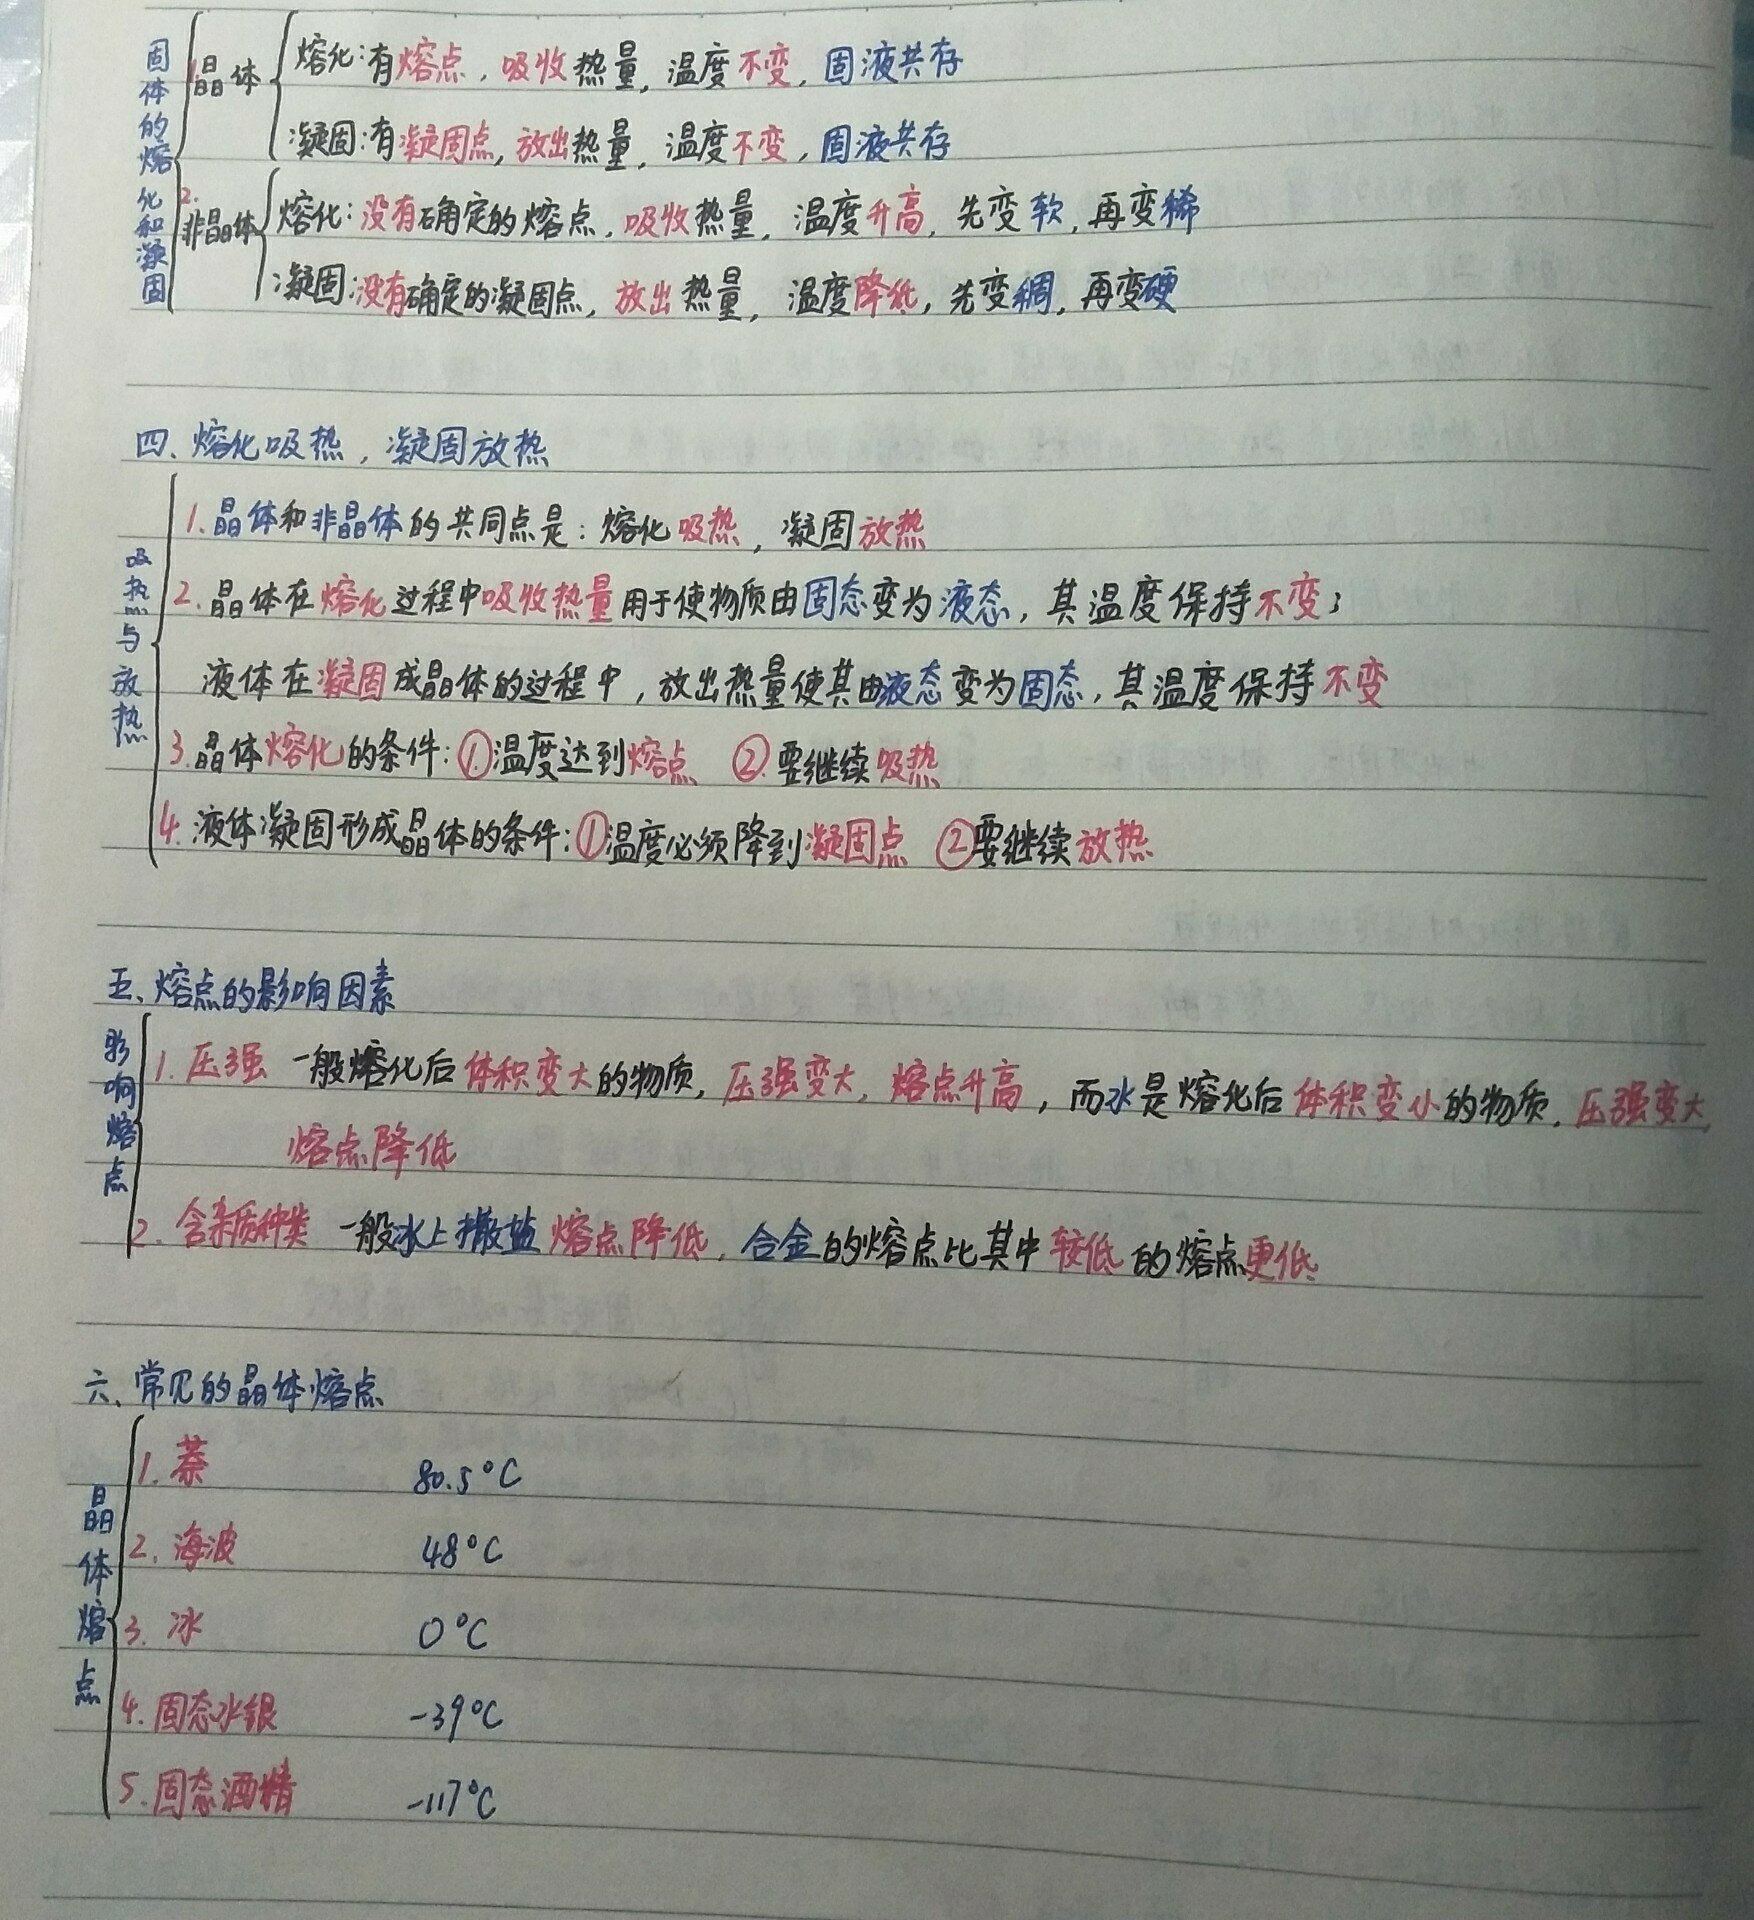 固体的熔化和凝固
1.晶体
熔化:有熔点,吸收热量,温度不变,固液共存
凝固:有凝固点,放出热量,温度不变,固液共存
2.非晶体
熔化:没有确定的熔点,吸收热量,温度升高,先变软,再变稀
凝固:没有确定的凝固点,放出热量,温度降低,先变稠,再变硬
四、熔化吸热,凝固放热
吸热与放热
1.晶体和非晶体的共同点是:熔化吸热,凝固放热
2.晶体在熔化过程中吸收热量用于使物质由固态变为液态,其温度保持不变;
液体在凝固成晶体的过程中,放出热量使其由液态变为固态,其温度保持不变
3.晶体熔化的条件:①温度达到熔点 ②要继续吸热
4.液体凝固形成晶体的条件:①温度必须降到凝固点 ②要继续放热
五、熔点的影响因素
影响熔点
1.压强 一般熔化后体积变大的物质,压强变大,熔点升高,而水是熔化后体积变小的物质,压强变大,
熔点降低
2.含杂质种类 一般冰上撒盐熔点降低,合金的熔点比其中较低的熔点更低
六、常见的晶体熔点
晶体熔点
1.萘 80.5°C
2.海波 48°C
3.冰 0°C
4.固态水银 -39°C
5.固态酒精 -117°C